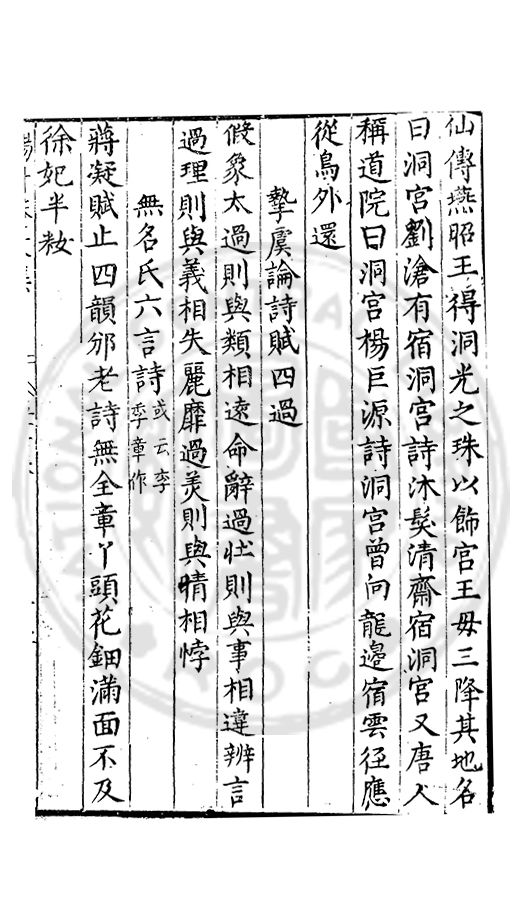 仙傳燕昭王得洞光之珠以飾宮王母三降其地名
曰洞宮劉滄有宿洞宮詩沐髮清齋宿洞宮又唐人
稱道院曰洞宮楊巨源詩洞宮曾向龍邊宿雲徑應
從鳥外還
摯虞論詩賦四過
假象太過則與類相遠命辭過壯則與事相違辨言
過理則與義相失麗靡過美則與情相悖
無名氏六言詩或云李季章作
蔣凝賦止四韻邠老詩無全章丫頭花鈿滿面不及
徐妃半妝